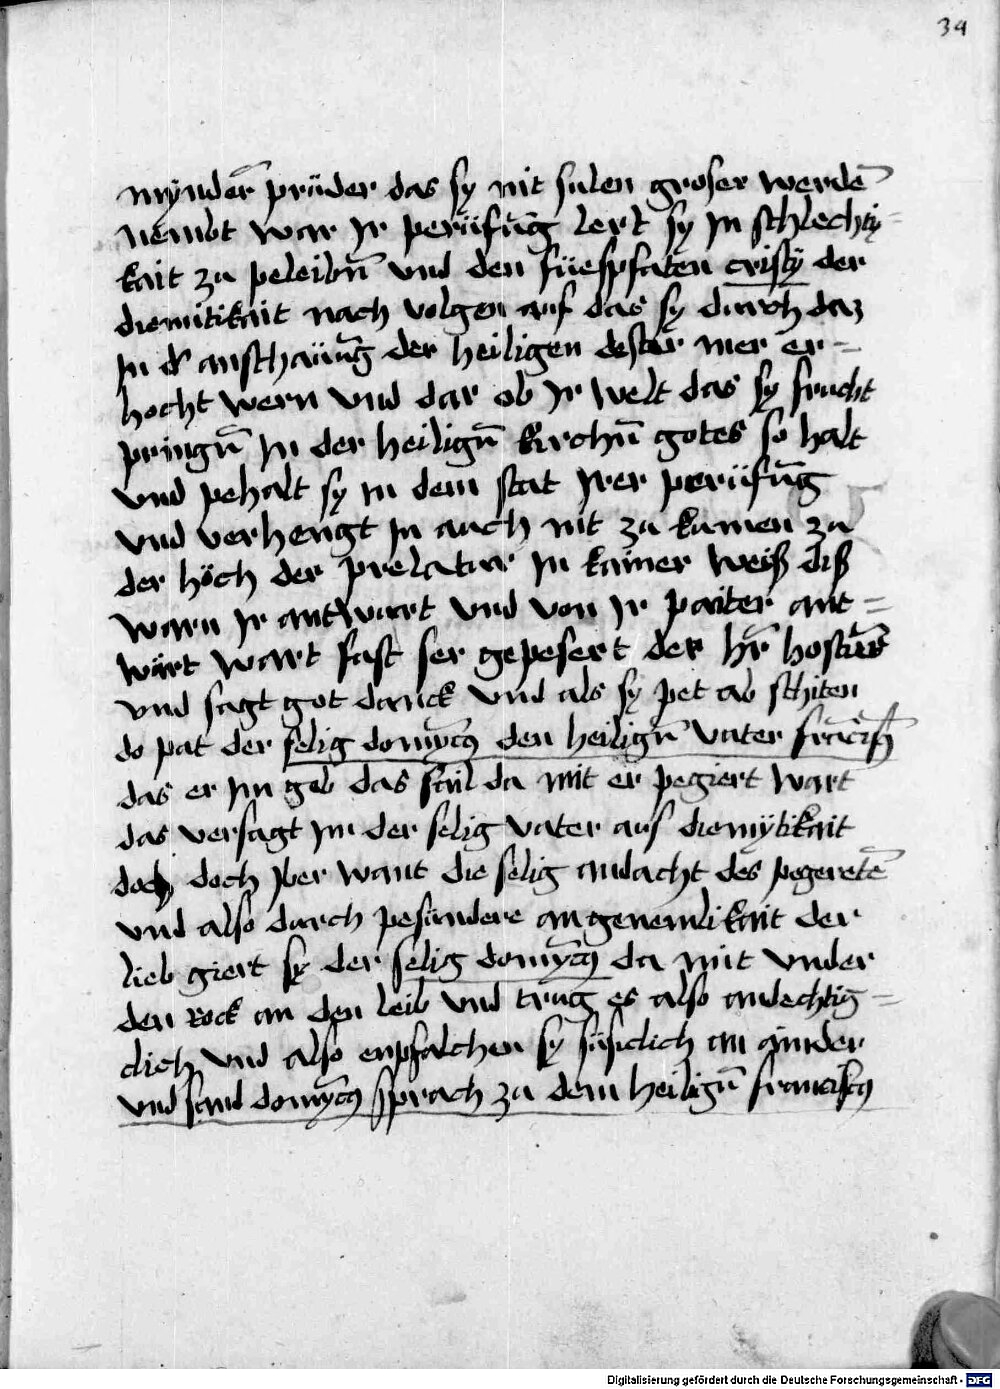 34
mynder̄ prüder das sy nit sulen groser werdē
nembt war Ir perüfūg lert sy In schlechti=
kait zu peleibn̄ vnd den füespfaten cristÿ der
diemitikait nach volgen auf das sy durch daz
In d' anschauūg der heiligen dester mer er=
hocht wern vnd dar ob Ir welt das sy frucht
pringn̄ In der heilign̄ kirchn̄ gotes so halt
vnd pehalt sy In dem stat Irer perüfūg
vnd verhengt In auch nit zu kumen zu
der höch der prelatur In kainer weiß diß
warn Ir antwurt vnd von Ir paiter ant=
würt wart fast ser gepesert der hr̄
vnd sagt got danck vnd als sy pet ab schiten
do pat der selig domȳcꝰ den heilign̄ vater
das er Im geb das sail da mit er pegiert wart
das versagt Im der selig vater auf diemÿtikait
doch doch Iber want die selig andacht des pegeretē
vnd also durch pesundere angenemlikait der
lieb giert sy der selig domȳcꝰ da mit vnder
den rock an den leib vnd trug es also andechtig=
clich vnd also enpfalchen sy süsiclich an ainder
vnd sand domȳcꝰ sprach zu dem heilign̄ franciscꝰ
Digitalisierung gefördert durch die Deutsche Forschungsgemeinschaft - DFG